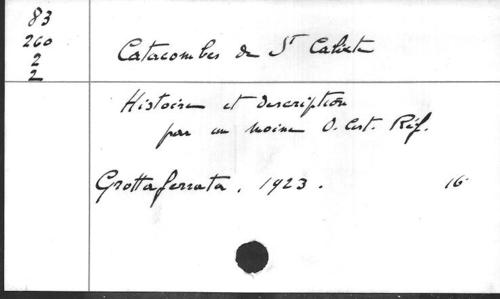 83
260
2
2
Catacombes de St Calixte
Histoire et description
par un moine O. Cist. Réf.
Grottaferrata, 1923.
16°